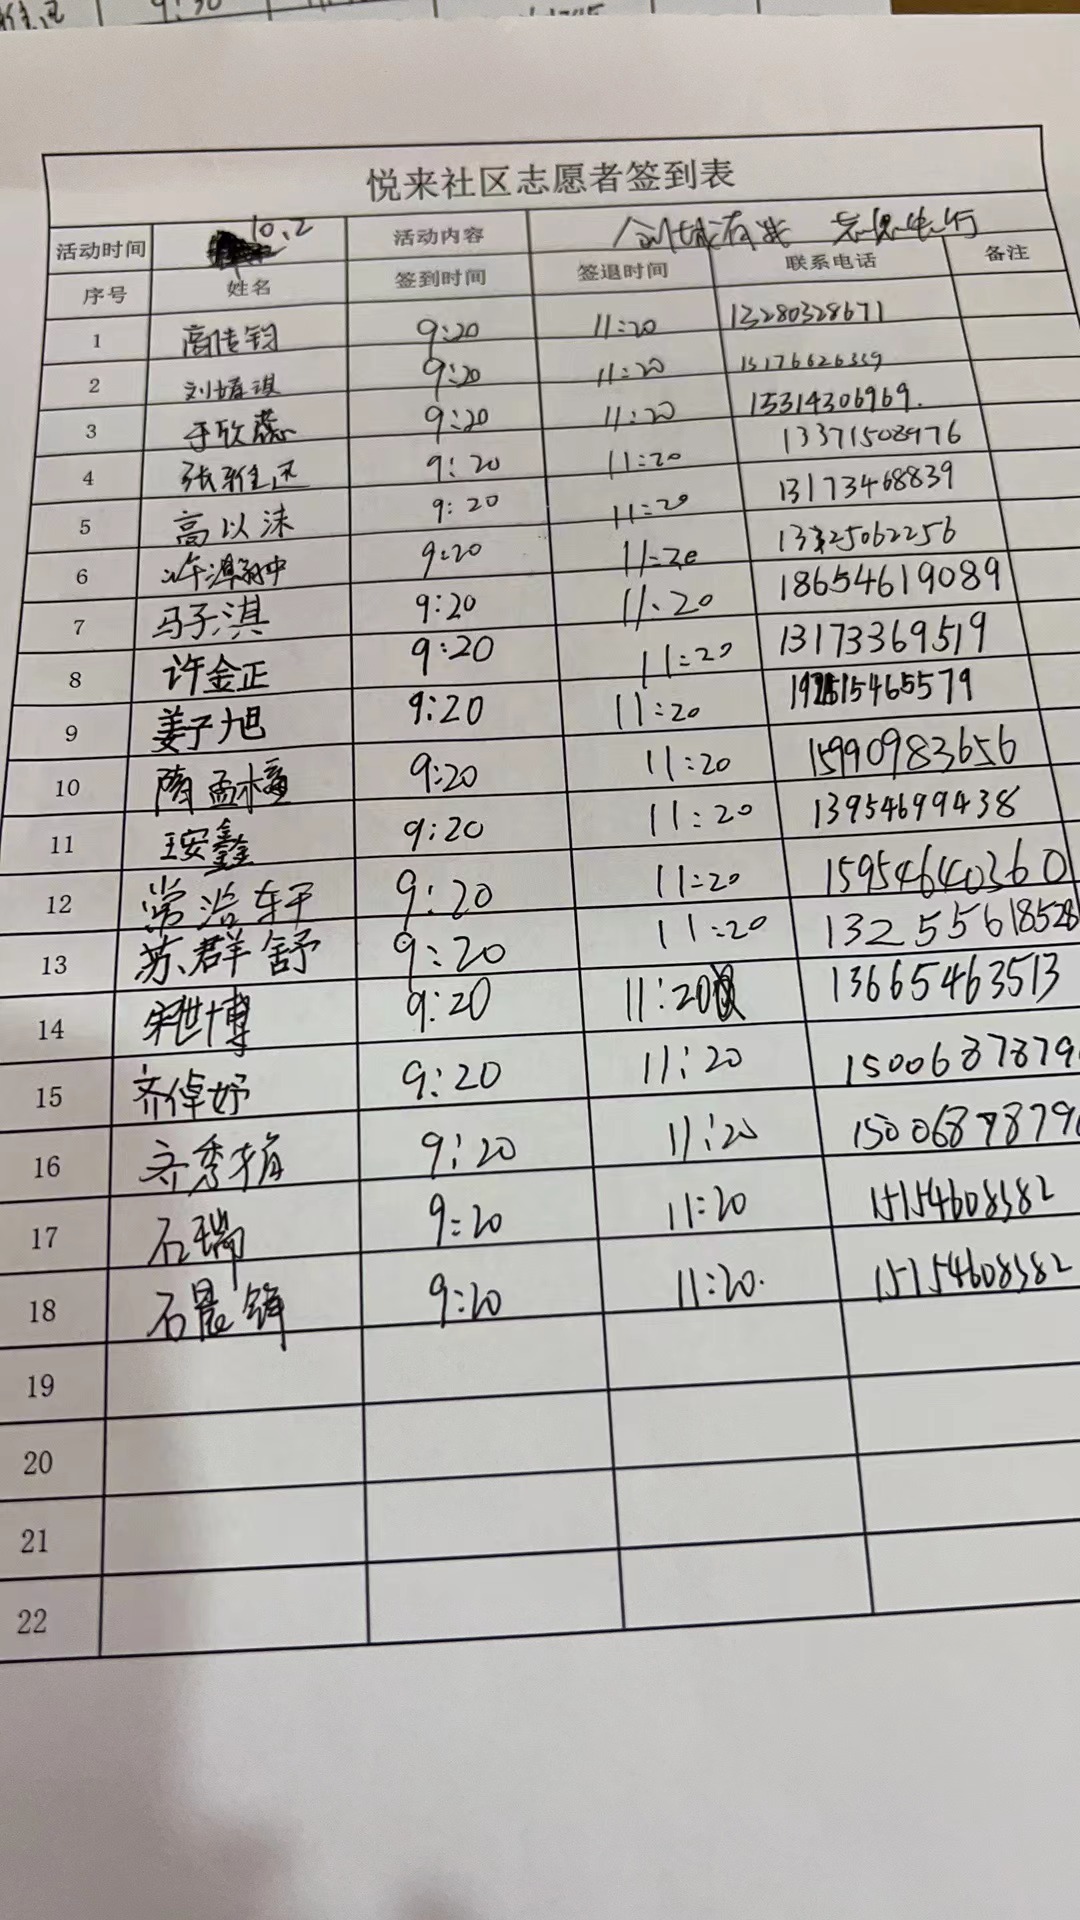 悦来社区志愿者签到表
活动时间 10.2 活动内容 创城有我 志愿先行
序号 姓名 签到时间 签退时间 联系电话 备注
1 高传钧 9:20 11:20 13280328671
2 9:20 11:20
3 于欣蕊 9:20 11:20 15314306969.
4 张雅迅 9:20 11:20 13371508976
5 高以沫 9:20 11:20 13173468839
6 9:20 11:20
7 马子淇 9:20 11:20 18654619089
8 许金正 9:20 11:20 13173369519
9 姜子旭 9:20 11:20
10 隋孟樯 9:20 11:20 15990983656
11 王安鑫 9:20 11:20 13954699438
12 常浩轩 9:20 11:20 15954640360
13 苏群舒 9:20 11:20 13255618528
14 宋世博 9:20 11:20 13665463513
15 齐倬妤 9:20 11:20 1500687879
16 齐秀梅 9:20 11:20 1500687879
17 石瑞 9:20 11:20 15154608382
18 石晨锋 9:20 11:20. 15154608382
19
20
21
22